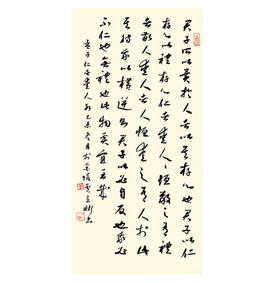 君子所以異於人者以其存心也君子以仁
存心以禮存心仁者愛人人恒敬之有禮
者敬人愛人者人恒愛之有人於此
其待我以橫逆則君子必自反也我必
不仁也必無禮也此物奚宜至哉
孟子仁者愛人 乙未冬月於金陵 彬書